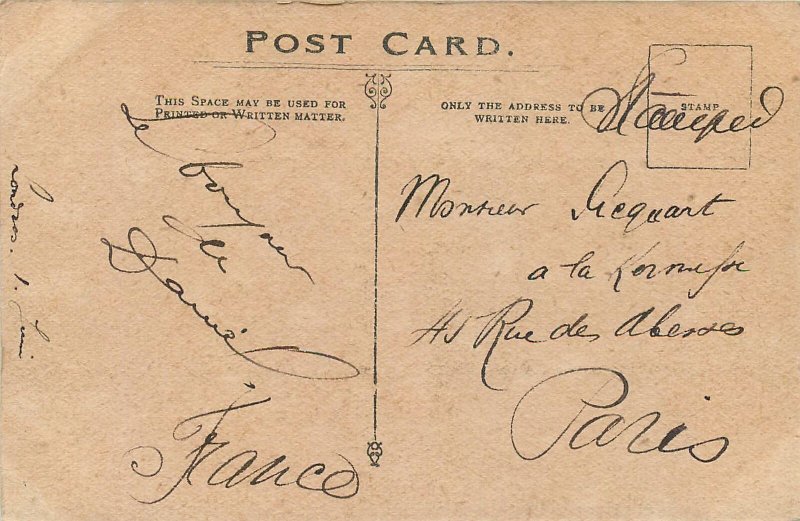 POST CARD.
THIS SPACE MAY BE USED FOR
PRINTED OR WRITTEN MATTER.
ONLY THE ADDRESS TO BE
WRITTEN HERE.
STAMP
Le bonjour
de
Daniel
France
Londres. 1. Juin
Monsieur Picquart
a la Kermesse
45 Rue des Abesses
Paris